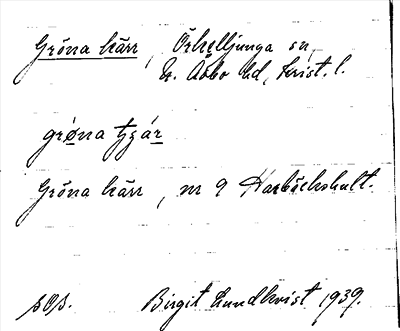 Gröna kärr, Örkelljunga sn,
N. Åsbo hd, Krist. l.
grøna tzár
Gröna kärr, nr 9 Harbäckshult.
søs.
Birgit Lundkvist 1939.